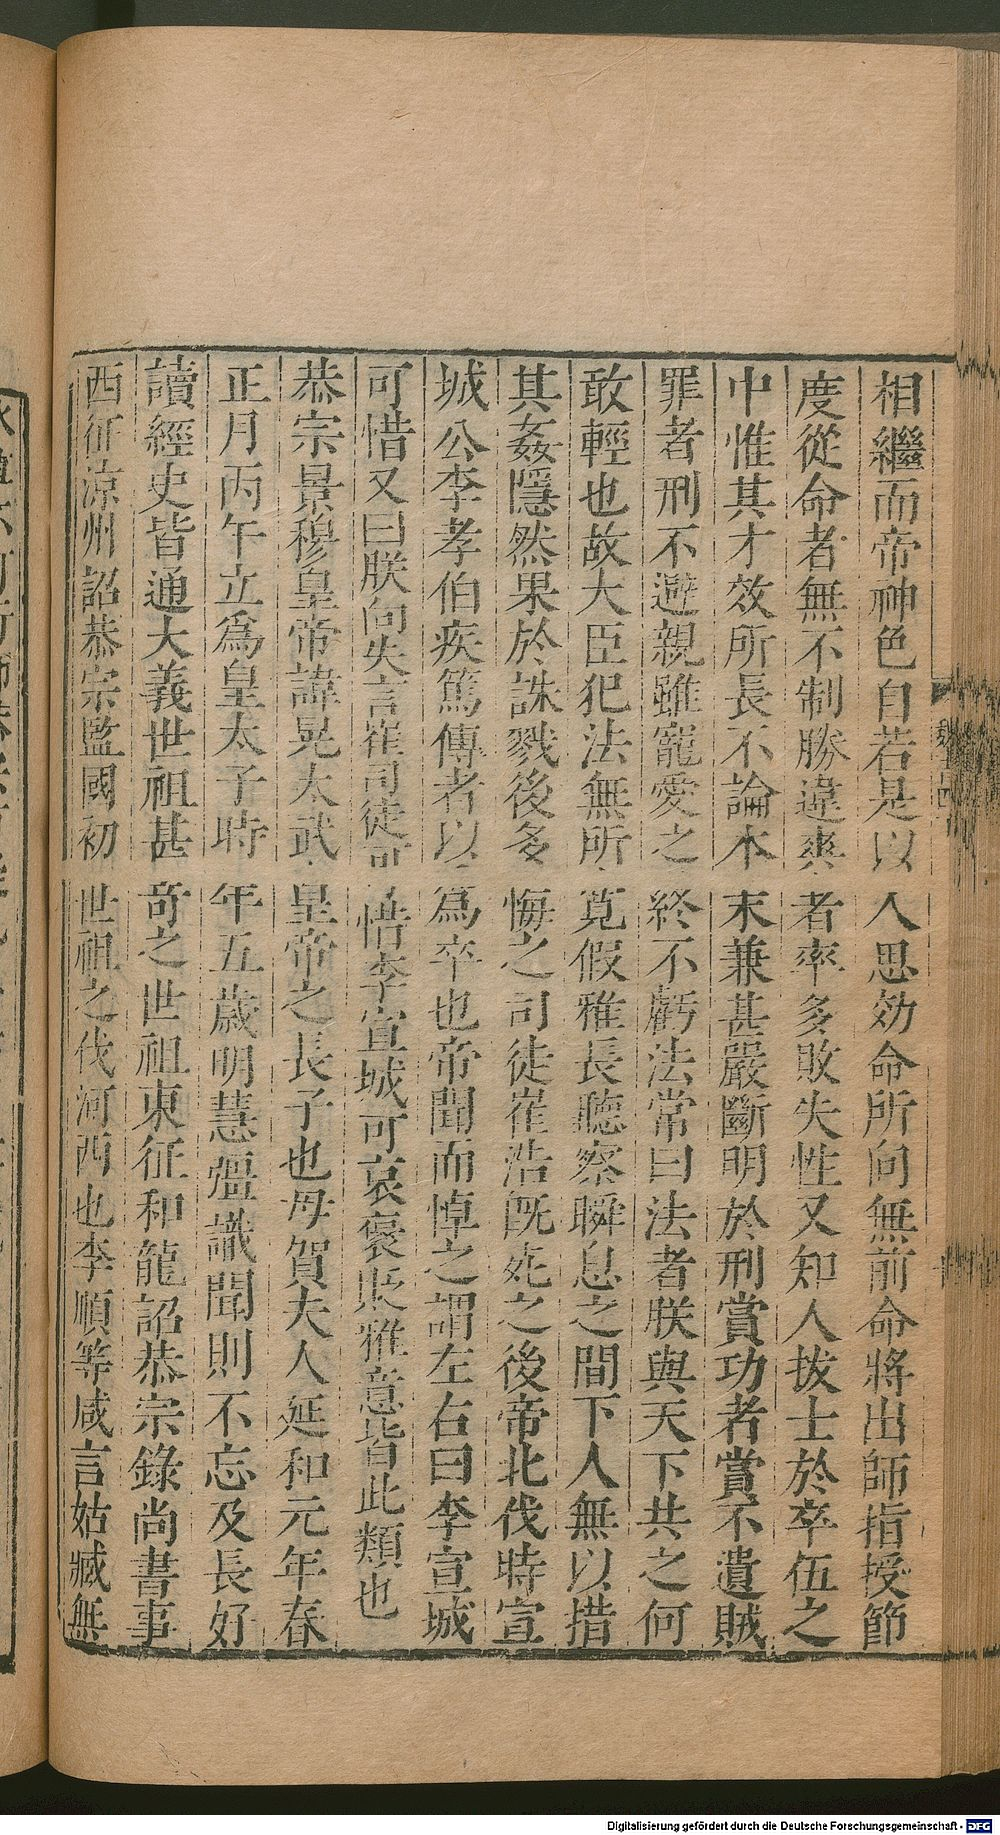 相繼而帝神色自若是以人思効命所向無前命將出師指授節
度從命者無不制勝違爽者率多敗失性又知人拔士於卒伍之
中惟其才效所長不論本末兼甚嚴斷明於刑賞功者賞不遺賊
罪者刑不避親雖寵愛之終不虧法常曰法者朕與天下共之何
敢輕也故大臣犯法無所寬假雅長聽察瞬息之間下人無以措
其姦隱然果於誅戮後多悔之司徒崔浩旣死之後帝北伐時宣
城公李孝伯疾篤傳者以爲卒也帝聞而悼之謂左右曰李宣城
可惜又曰朕向失言崔司徒可惜李宣城可哀襃貶雅意皆此類也
恭宗景穆皇帝諱晃太武皇帝之長子也母賀夫人延和元年春
正月丙午立爲皇太子時年五歲明慧彊識聞則不忘及長好
讀經史皆通大義世祖甚奇之世祖東征和龍詔恭宗錄尚書事
西征涼州詔恭宗監國初世祖之伐河西也李順等咸言姑臧無
Digitalisierung gefördert durch die Deutsche Forschungsgemeinschaft - DFG